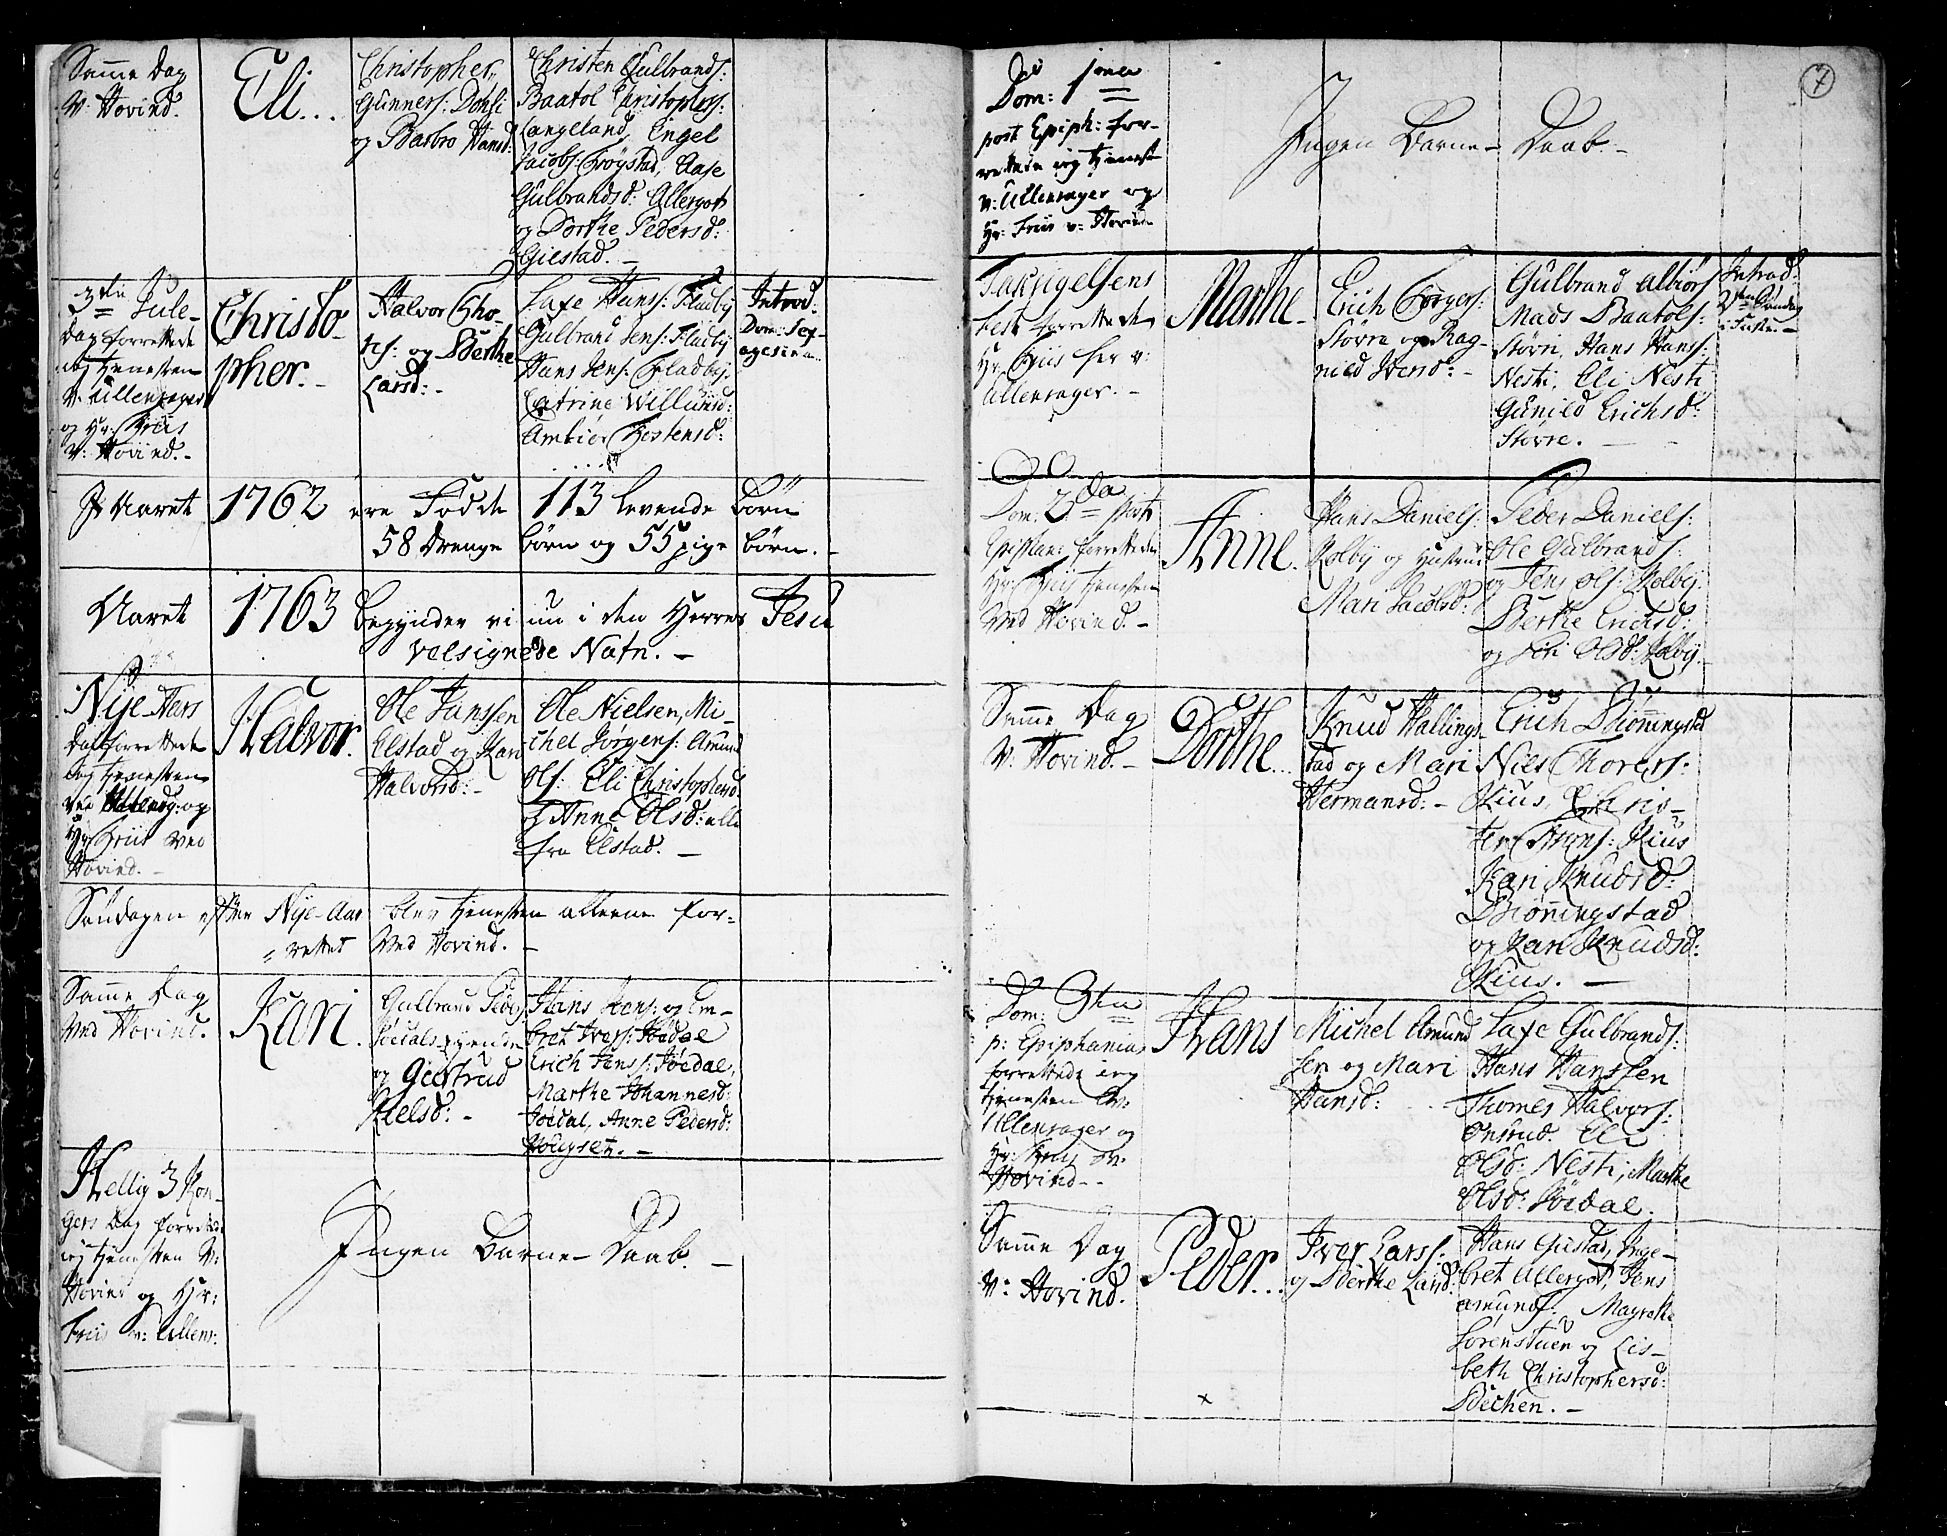 Samme Dag
V: Hovind.
Eli...
Christopher
Gunners: Dohli
og Barbro Hansd:
Christen Gulbrands:
Baatol Christophers:
Langeland, Engel
Jacobs: Aase
Gulbrandsd: Allergot
og Dorthe Pedersd:
Giestad. –
3die Jule-
Dag forrettede
ieg tienesten
V: Ullensager
og Hr: Friis
V: Hovind. –
Christo-
pher. –
Halvor Tho-
rs: og Berthe
Larsd: –
Laxe Hans: Fladby
Gulbrand Jens: Fladby
Hans Jens: Fladby,
Catrine Willumsd:
Ambiør Tostensd:
Introd:
Dom: Sex-
agesima.
I Aaret 1762 ere Fødte 113 levende Børn
58 Drenge børn og 55 pige børn. –
Aaret 1763 begynder vi nu i den Herres Jesu
velsignede Nafn. –
Nye Aars
Dag forrettede
Jeg tienesten
ved og
Hr Friis ved
Hovind. –
Halvor.
Ole Hanssen
Elstad og Kari
Halvorsd: –
Ole Nielsen, Mi-
chel Jørgens: Amund
Ols: Eli Christophersd:
og Anne Olsd: alle
fra Elstad. –
Søndagen efter Nye-Aar blev tienesten allene for-
rettet Ved Hovind. –
Samme Dag
Ved Hovind.
Kari.
Gulbrand
og Giertrud
Nielsd: –
Hans Jens: og Em-
bret Ivers: Jødal
Erich Jens: Jødal,
Marthe Johannesd:
Jødal, Anne Pedersd:
Hougset. –
Hellig 3 Kon-
gers Dag forrettede
ieg tienesten V:
Hovind og Hr:
Friis v: Ullens:
Ingen Barne-Daab. –
7
Dom: 1ma
post Epiph: for-
rettede ieg tienest
v: Ullensager og
Hr: Friis v: Hovind
Ingen Barne-Daab. –
Taksigelsens
fest forrettede
Hr Friis her v:
Ullensager. –
Marthe.
Erich Torgers:
Større og Rag-
nild Iversd: –
Gulbrand Albiør
Mads Baatols:
Størri, Hans Hans:
Nesti, Eli Nesti
Gunild Erichsd:
Større. –
Introd:
i Fasten –
Dom: 2da post
Epiphan: forrettede
Hr: Friis tienesten
Ved Hovind. –
Anne.
Hans Daniels:
Kolby og Hustrue
Mari Jacobsd:
Peder Daniels:
Ole Gulbrands:
og Jens Ols: Kolby.
Berthe Erichsd:
og Siri Olsd: Kolby.
Samme Dag
V: Hovind. –
Dorthe...
Knud Hallings-
stad og Mari
Hermansd: –
Erich Biønningstad
Niels Thorers:
Kius, Chris-
ten Kius
Kari Knudsd:
Biønningstad
og Kari Knudsd:
Kius. –
Dom: 3tia
p: Epiphanias
forrettede ieg
tienesten v:
Ullensager og
Hr: Friis v:
Hovind –
Hans
Michel Amund
sen og Mari
Hansd: –
Laxe Gulbrands:
Hans Hanssen
Thomes Halvors:
Onsrud. Eli
Olsd: Nesti, Marthe
Olsd: Jødal.
Samme Dag
V: Hovind.
Peder...
Iver Lars:
og Berthe Larsd:
Hans Giestad, Inge-
bret Allergot, Jens
Amunds: Magrethe
Sørenstuen og Lis-
beth Christophersd:
Bechen. –
x